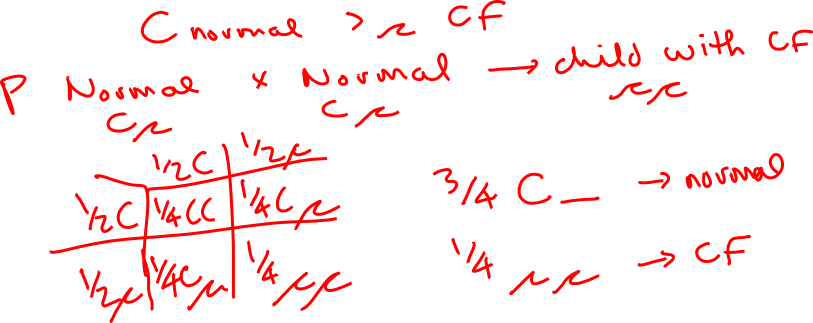 C normal > c CF
P Normal x Normal → child with CF
Cc Cc cc
1/2C 1/2c
1/2C 1/4CC 1/4Cc
1/2c 1/4Cc 1/4cc
3/4 C_ → normal
1/4 cc → CF